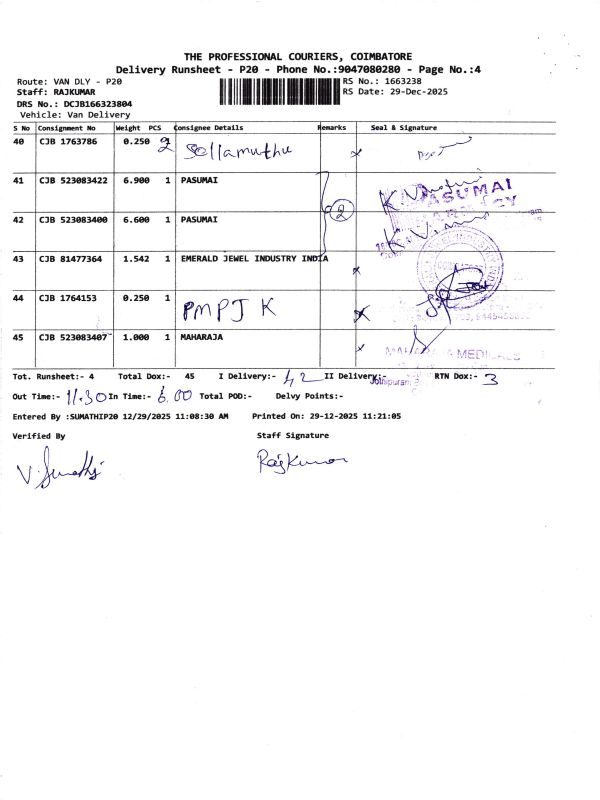 THE PROFESSIONAL COURIERS, COIMBATORE
Delivery Runsheet - P20 - Phone No.:9047080280 - Page No.:4
Route: VAN DLY - P20
RS No.: 1663238
Staff: RAJKUMAR
RS Date: 29-Dec-2025
DRS No.: DCJB166323804
Vehicle: Van Delivery
S No Consignment No Weight PCS Consignee Details Remarks Seal & Signature
40 CJB 1763786 0.250 2 Sellamuthu
41 CJB 523083422 6.900 1 PASUMAI
PASUMAI
2
42 CJB 523083400 6.600 1 PASUMAI
43 CJB 81477364 1.542 1 EMERALD JEWEL INDUSTRY INDIA
44 CJB 1764153 0.250 1 PMPJ K
45 CJB 523083407 1.000 1 MAHARAJA
MEDICALS
Tot. Runsheet:- 4 Total Dox:- 45 I Delivery:- 42 II Delivery:- RTN Dox:- 3
Out Time:- 11.30 In Time:- 6.00 Total POD:- Delvy Points:-
Entered By :SUMATHIP20 12/29/2025 11:08:30 AM Printed On: 29-12-2025 11:21:05
Verified By Staff Signature
V. Sumathi RajKumar